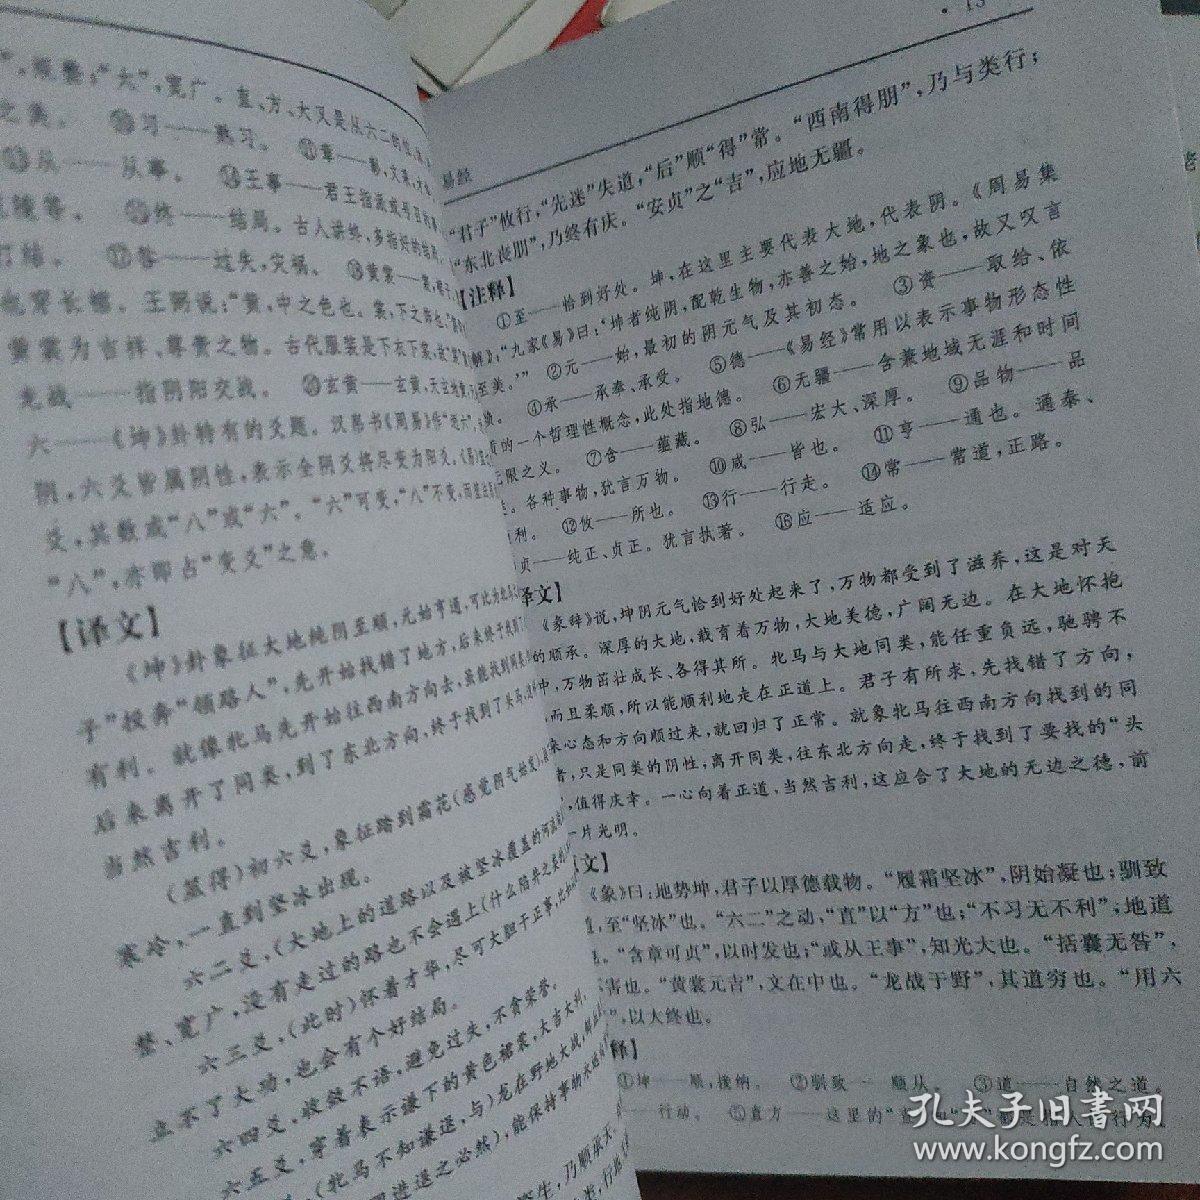 ”，规整；“大”，宽广。直、方、大又是从六二
之美。 习——熟习。 ⑪章——
⑬从——从事。 ⑭王事——君王指派或号召的事
⑮终——结局。古人讲终，多指好的结局
⑰咎——过失，灾祸。 ⑱黄裳——
也穿长裙。王弼说：“黄，中之色也。裳，下之饰也。”
黄裳为吉祥、尊贵之物。古代服装是下衣下裳，
龙战——指阴阳交战。 玄黄——玄黄，天
六——《坤》卦特有的爻题。汉帛书《周易》作“
阴，六爻皆属阴性，表示全阴爻将尽变为阳爻。
爻，其数或“八”或“六”。“六”可变，“八”不变，
“八”，亦即占“变爻”之意。
【译文】
《坤》卦象征大地纯阴至顺，元始亨通，
子”投奔“领路人”，先开始找错了地方，后来终于找到了
有利。就像牝马先开始往西南方向去，虽能找到同类
后来离开了同类，到了东北方向，终于找到了头马，
当然吉利。
（筮得）初六爻，象征踏到霜花（感觉阴气始发），
寒冷，一直到坚冰出现。
六二爻，（大地上的道路以及被坚冰覆盖的河流
整、宽广，没有走过的路也不会遇上（什么陷井之类
六三爻，（此时）怀着才华，尽可大胆干正事，比如
立不了大功，也会有个好结局。
六四爻，收敛不语，避免过失，不贪荣誉。
六五爻，穿着表示谦下的黄色裙裳，大吉大利。
（牝马不知谦逊，与）龙在野地大战，
进退之必然），能保持事物
生，乃顺承天
易经
“君子”攸行，“先迷”失道，“后”顺“得”常。“西南得朋”，乃与类行；
“东北丧朋”，乃终有庆。“安贞”之“吉”，应地无疆。
【注释】
①至——恰到好处。坤，在这里主要代表大地，代表阴。《周易集
解》：“九家《易》曰：‘坤者纯阴，配乾生物，亦善之始，地之象也，故又叹言
至美。’” ②元——始，最初的阴元气及其初态。 ③资——取给、依
④承——承奉、承受。 ⑤德——《易经》常用以表示事物形态性
的一个哲理性概念，此处指地德。 ⑥无疆——含兼地域无涯和时间
限之义。 ⑦含——蕴藏。 ⑧弘——宏大、深厚。 ⑨品物——品
。各种事物，犹言万物。 ⑩咸——皆也。 ⑪亨——通也。通泰、
利。 ⑫攸——所也。 ⑬行——行走。 ⑭常——常道，正路。
贞——纯正、贞正。犹言执著。 ⑯应——适应。
译文】
《彖辞》说，坤阴元气恰到好处起来了，万物都受到了滋养，这是对天
的顺承。深厚的大地，载育着万物，大地美德，广阔无边。在大地怀抱
中，万物茁壮成长、各得其所。牝马与大地同类，能任重负远，驰骋不
而且柔顺，所以能顺利地走在正道上。君子有所求，先找错了方向，
来心态和方向顺过来，就回归了正常。就象牝马往西南方向找到的同
者，只是同类的阴性，离开同类，往东北方向走，终于找到了要找的“头
，值得庆幸。一心向着正道，当然吉利，这应合了大地的无边之德，前
一片光明。
文】
《象》曰：地势坤，君子以厚德载物。“履霜坚冰”，阴始凝也；驯致
，至“坚冰”也。“六二”之动，“直”以“方”也；“不习无不利”，地道
。“含章可贞”，以时发也；“或从王事”，知光大也。“括囊无咎”，
害也。“黄裳元吉”，文在中也。“龙战于野”，其道穷也。“用六
”，以大终也。
释】
①坤——顺，接纳。 ②驯致——顺从。 ③道——自然之道。
——行动。 ⑤直方——这里的“直
孔夫子旧书网
www.kongfz.com